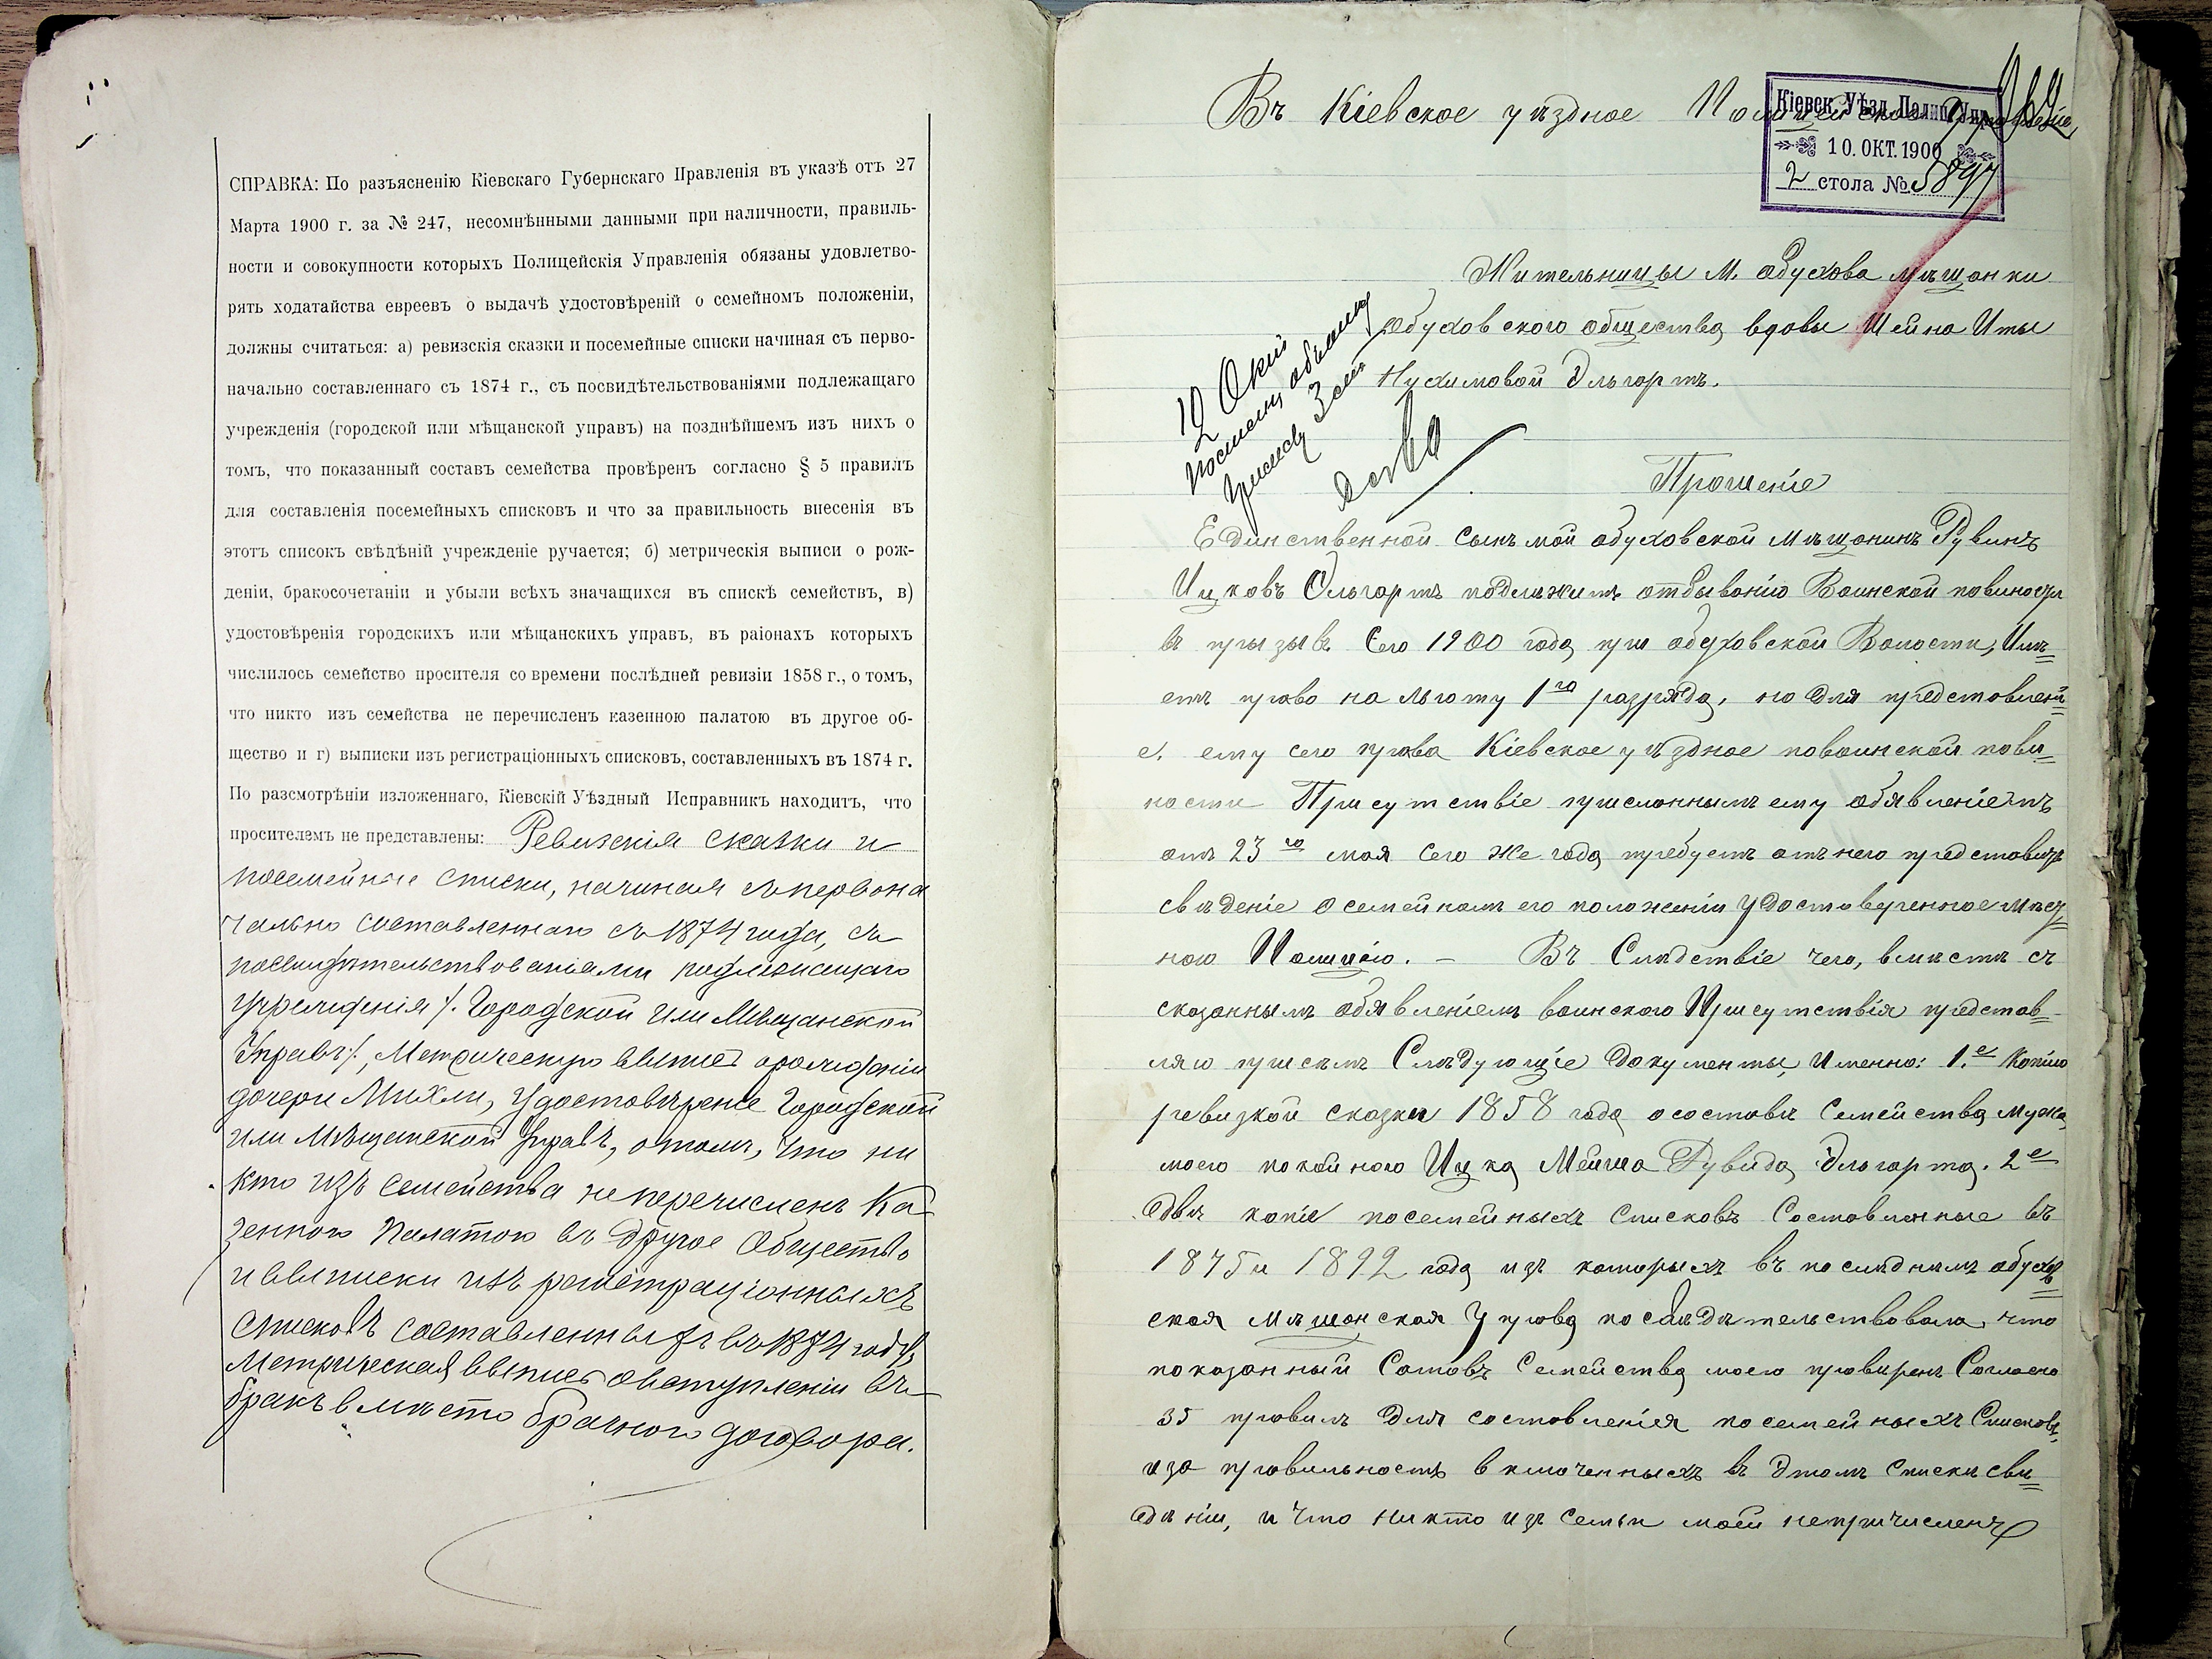 СПРАВКА: По разъясненію Кіевскаго Губернскаго Правленія въ указѣ отъ 27
Марта 1900 г. за № 247, несомнѣнными данными при наличности, правиль-
ности и совокупности которыхъ Полицейскія Управленія обязаны удовлетво-
рять ходатайства евреевъ о выдачѣ удостовѣреній о семейномъ положеніи,
должны считаться: а) ревизскія сказки и посемейные списки начиная съ перво-
начально составленнаго съ 1874 г., съ посвидѣтельствованіями подлежащаго
учрежденія (городской или мѣщанской управъ) на позднѣйшемъ изъ нихъ о
томъ, что показанный составъ семейства провѣренъ согласно § 5 правилъ
для составленія посемейныхъ списковъ и что за правильность внесенія въ
этотъ списокъ свѣдѣній учрежденіе ручается; б) метрическія выписи о рож-
деніи, бракосочетаніи и убыли всѣхъ значащихся въ спискѣ семействъ, в)
удостовѣренія городскихъ или мѣщанскихъ управъ, въ раіонахъ которыхъ
числилось семейство просителя со времени послѣдней ревизіи 1858 г., о томъ,
что никто изъ семейства не перечисленъ казенною палатою въ другое об-
щество и г) выписки изъ регистраціонныхъ списковъ, составленныхъ въ 1874 г.
По разсмотрѣніи изложеннаго, Кіевскій Уѣздный Исправникъ находитъ, что
просителемъ не представлены: Ревизскія сказки и
посемейные списки, начиная съ первона
чально составленнаго съ 1874 года, съ
посвидѣтельствованіями подлежащаго
учрежденія /. Городской или Мѣщанской
Управъ /, Метрическую выпись о рожденіи
дочери Михли, удостовѣреніе Городской
или Мѣщанской Управъ, о томъ, что ни
кто изъ семейства не перечисленъ Ка
зенною Палатою въ другое Общество
и выписки изъ регистраціонныхъ
списковъ составленныхъ въ 1874 году
Метрическая выпись о вступленіи въ
бракъ вмѣсто брачного договора.
Въ Кіевское уѣздное Полицейское Управленіе
Кіевск. Уѣзд. Полиц. Упр.
10. ОКТ. 1900
2 стола № 5897
Жительницы М. Обухова мѣщанки
Обуховского общества вдовы Шейна Иты
Нухимовой Эльгортъ.
12 Окт
Прошеніе
Единственной сынъ мой обуховской мѣщанинъ Рувинъ
Ицковъ Эльгортъ подлѣжитъ отбыванію Воинской повиности
въ призывъ Сего 1900 года при обуховской Волости, Имѣ=
етъ право на льготу 1го разряда, но для представлені=
е. ему сего права Кіевское уѣздное повоинской пови=
ности Присутствіе присланнымъ ему обявленіемъ
отъ 23го мая Сего же года требуетъ отъ него представить
свѣденіе о семейномъ его положеніи удостовереное мѣст
ною Полиціею. – Въ Слѣдствіе чего, вмѣстѣ съ
сказаннымъ обявленіемъ воинского Присутствія представ-
ляю присемъ Слѣдующіе документы, Именно: 1.е Копію
ревизкой сказки 1858 года о составѣ Семейства мужа
моего покойного Ицка Мейша Рувида Эльгорта. 2е
Двѣ копіе посемейныхъ списковъ Составленные въ
1875 и 1892 года изъ которыхъ въ послѣднимъ обухов=
ская мѣшанская Управа посвидѣтельствовала, что
показанный Соствъ Семейства моего провиренъ Согласно
35 правилъ для составленія посемейныхъ Списковъ,
и за правильность включенныхъ въ этомъ списки сви=
дѣніи, и что никто изъ семьи моей непричисленъ